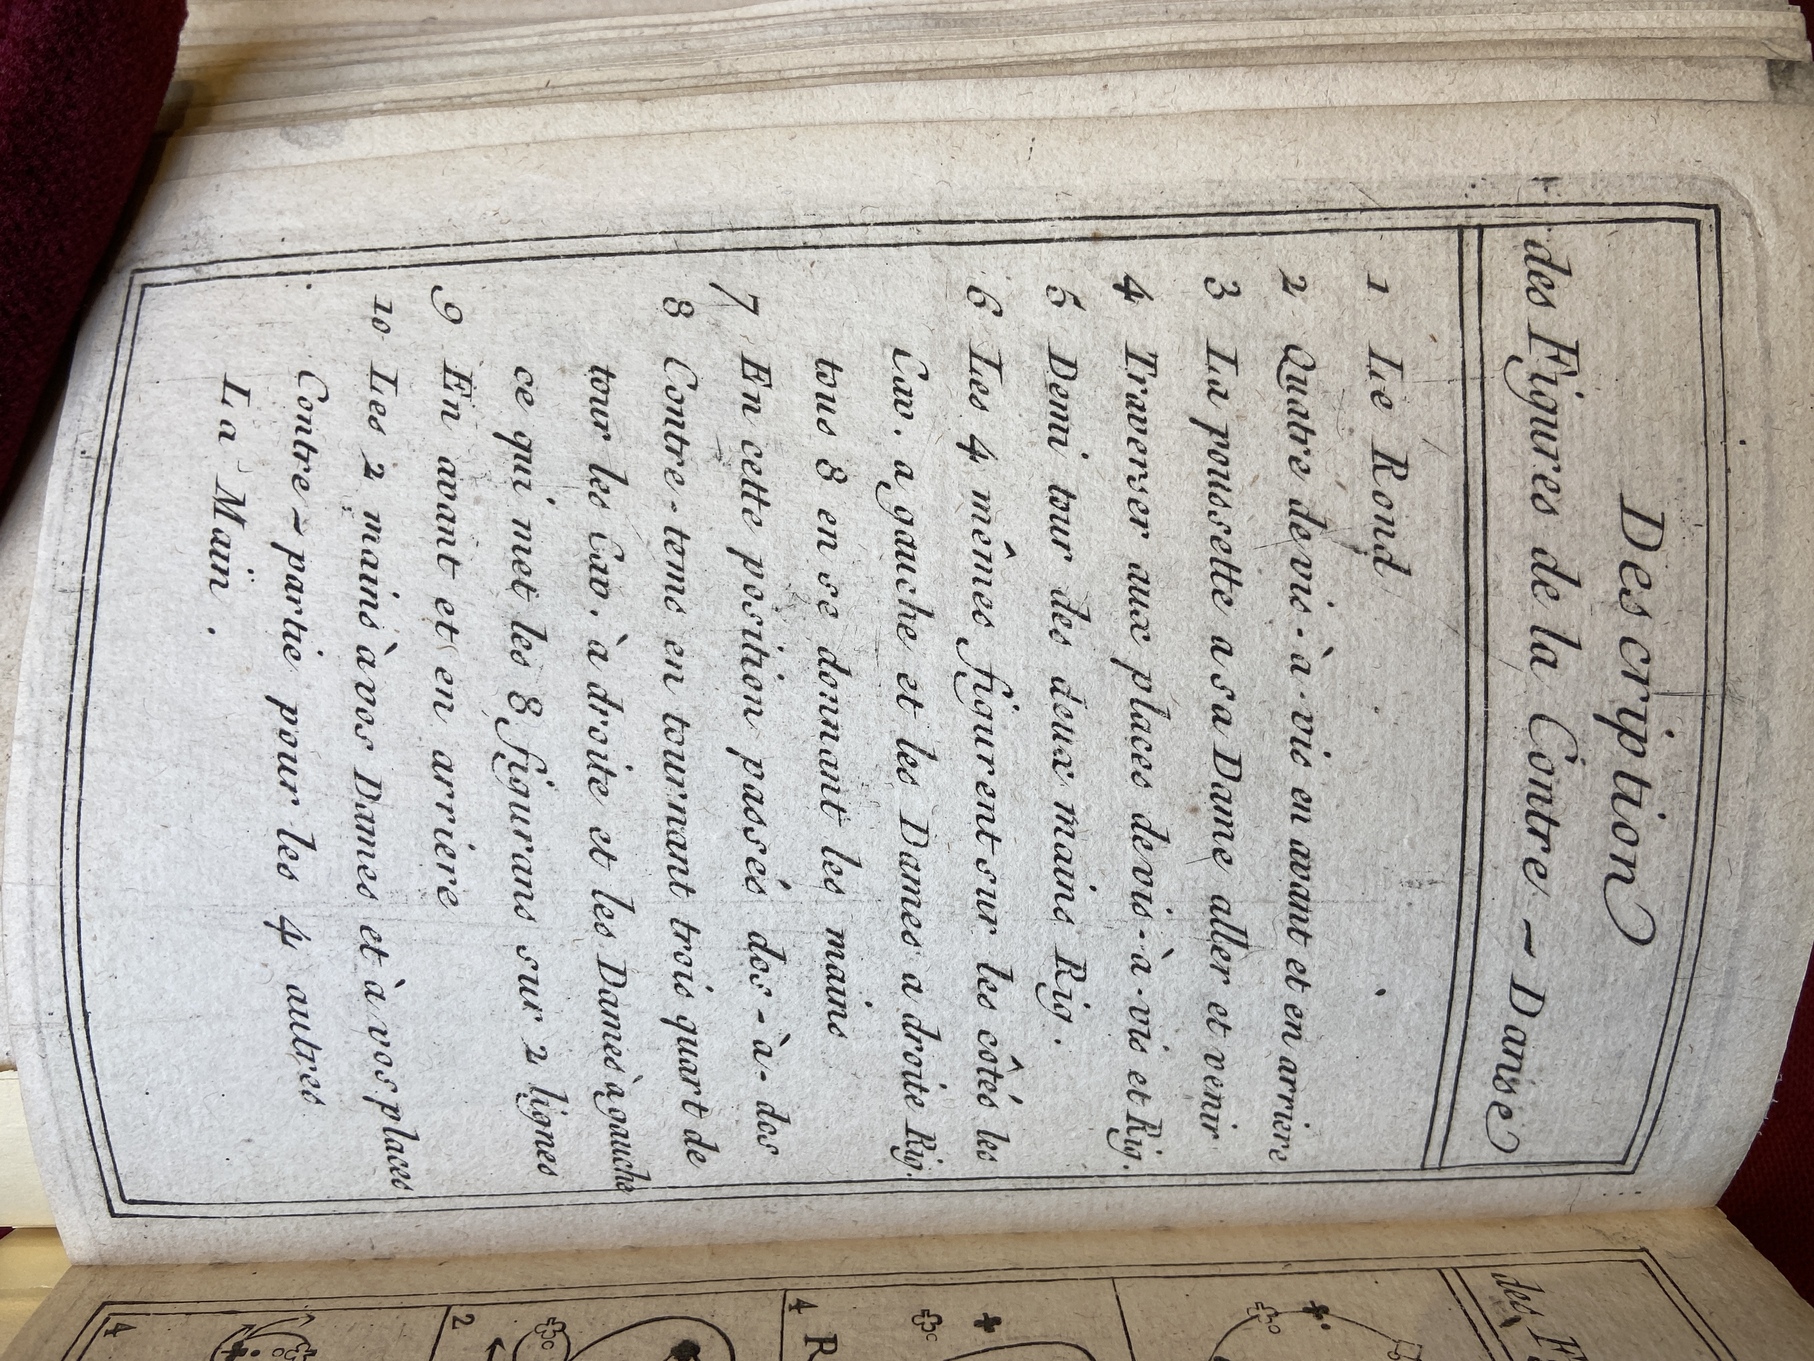 Description
des Figures de la Contre - Danse
1 Le Rond
2 Quatre devis-à-vis en avant et en arriere
3 La poussette a sa Dame aller et venir
4 Traverser aux places devis-à-vis et Rig.
5 Demi tour des deux mains Rig.
6 Les 4 mêmes figurent sur les côtés les
Cav. a gauche et les Dames a droite Rig.
tous 8 en se donnant les mains
7 En cette position passés dos-à-dos
8 Contre-tems en tournant trois quart de
tour les Cav. à droite et les Dames à gauche
ce qui met les 8 figurans sur 2 lignes
9 En avant et en arriere
10 Les 2 mains à vos Dames et à vos places
Contre-partie pour les 4 autres
La Main.
des F
4 R
2
4